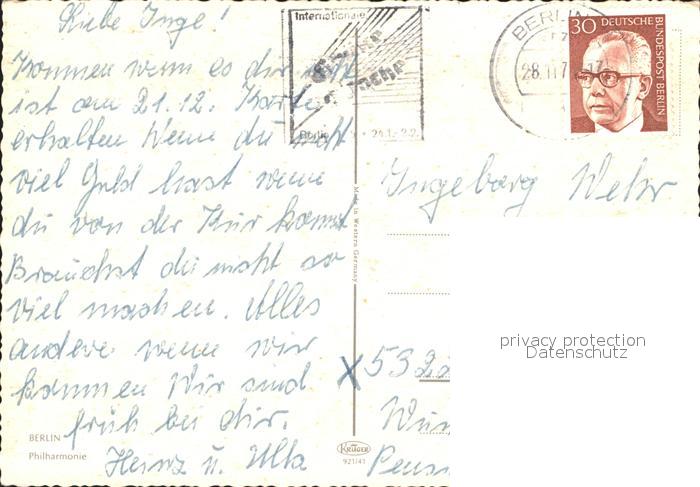 Liebe Inge!
Kommen wenn es dir
ist am 21.12. Karte
erhalten Wenn du
viel Geld hast wenn
du von der Kur kommst
Brauchst du nicht so
viel machen. Alles
andere wenn wir
kommen Wir sind
früh bei dir.
Heinz u.
BERLIN
Philharmonie
Internationale
Grüne
Woche
Berlin 24.1.-2.2.
BERLIN
28.11.7
30 DEUTSCHE BUNDESPOST BERLIN
Made in Western Germany
Ingeborg Wehr
privacy protection
Datenschutz
X 532
KRÜGER
921/41
Pens